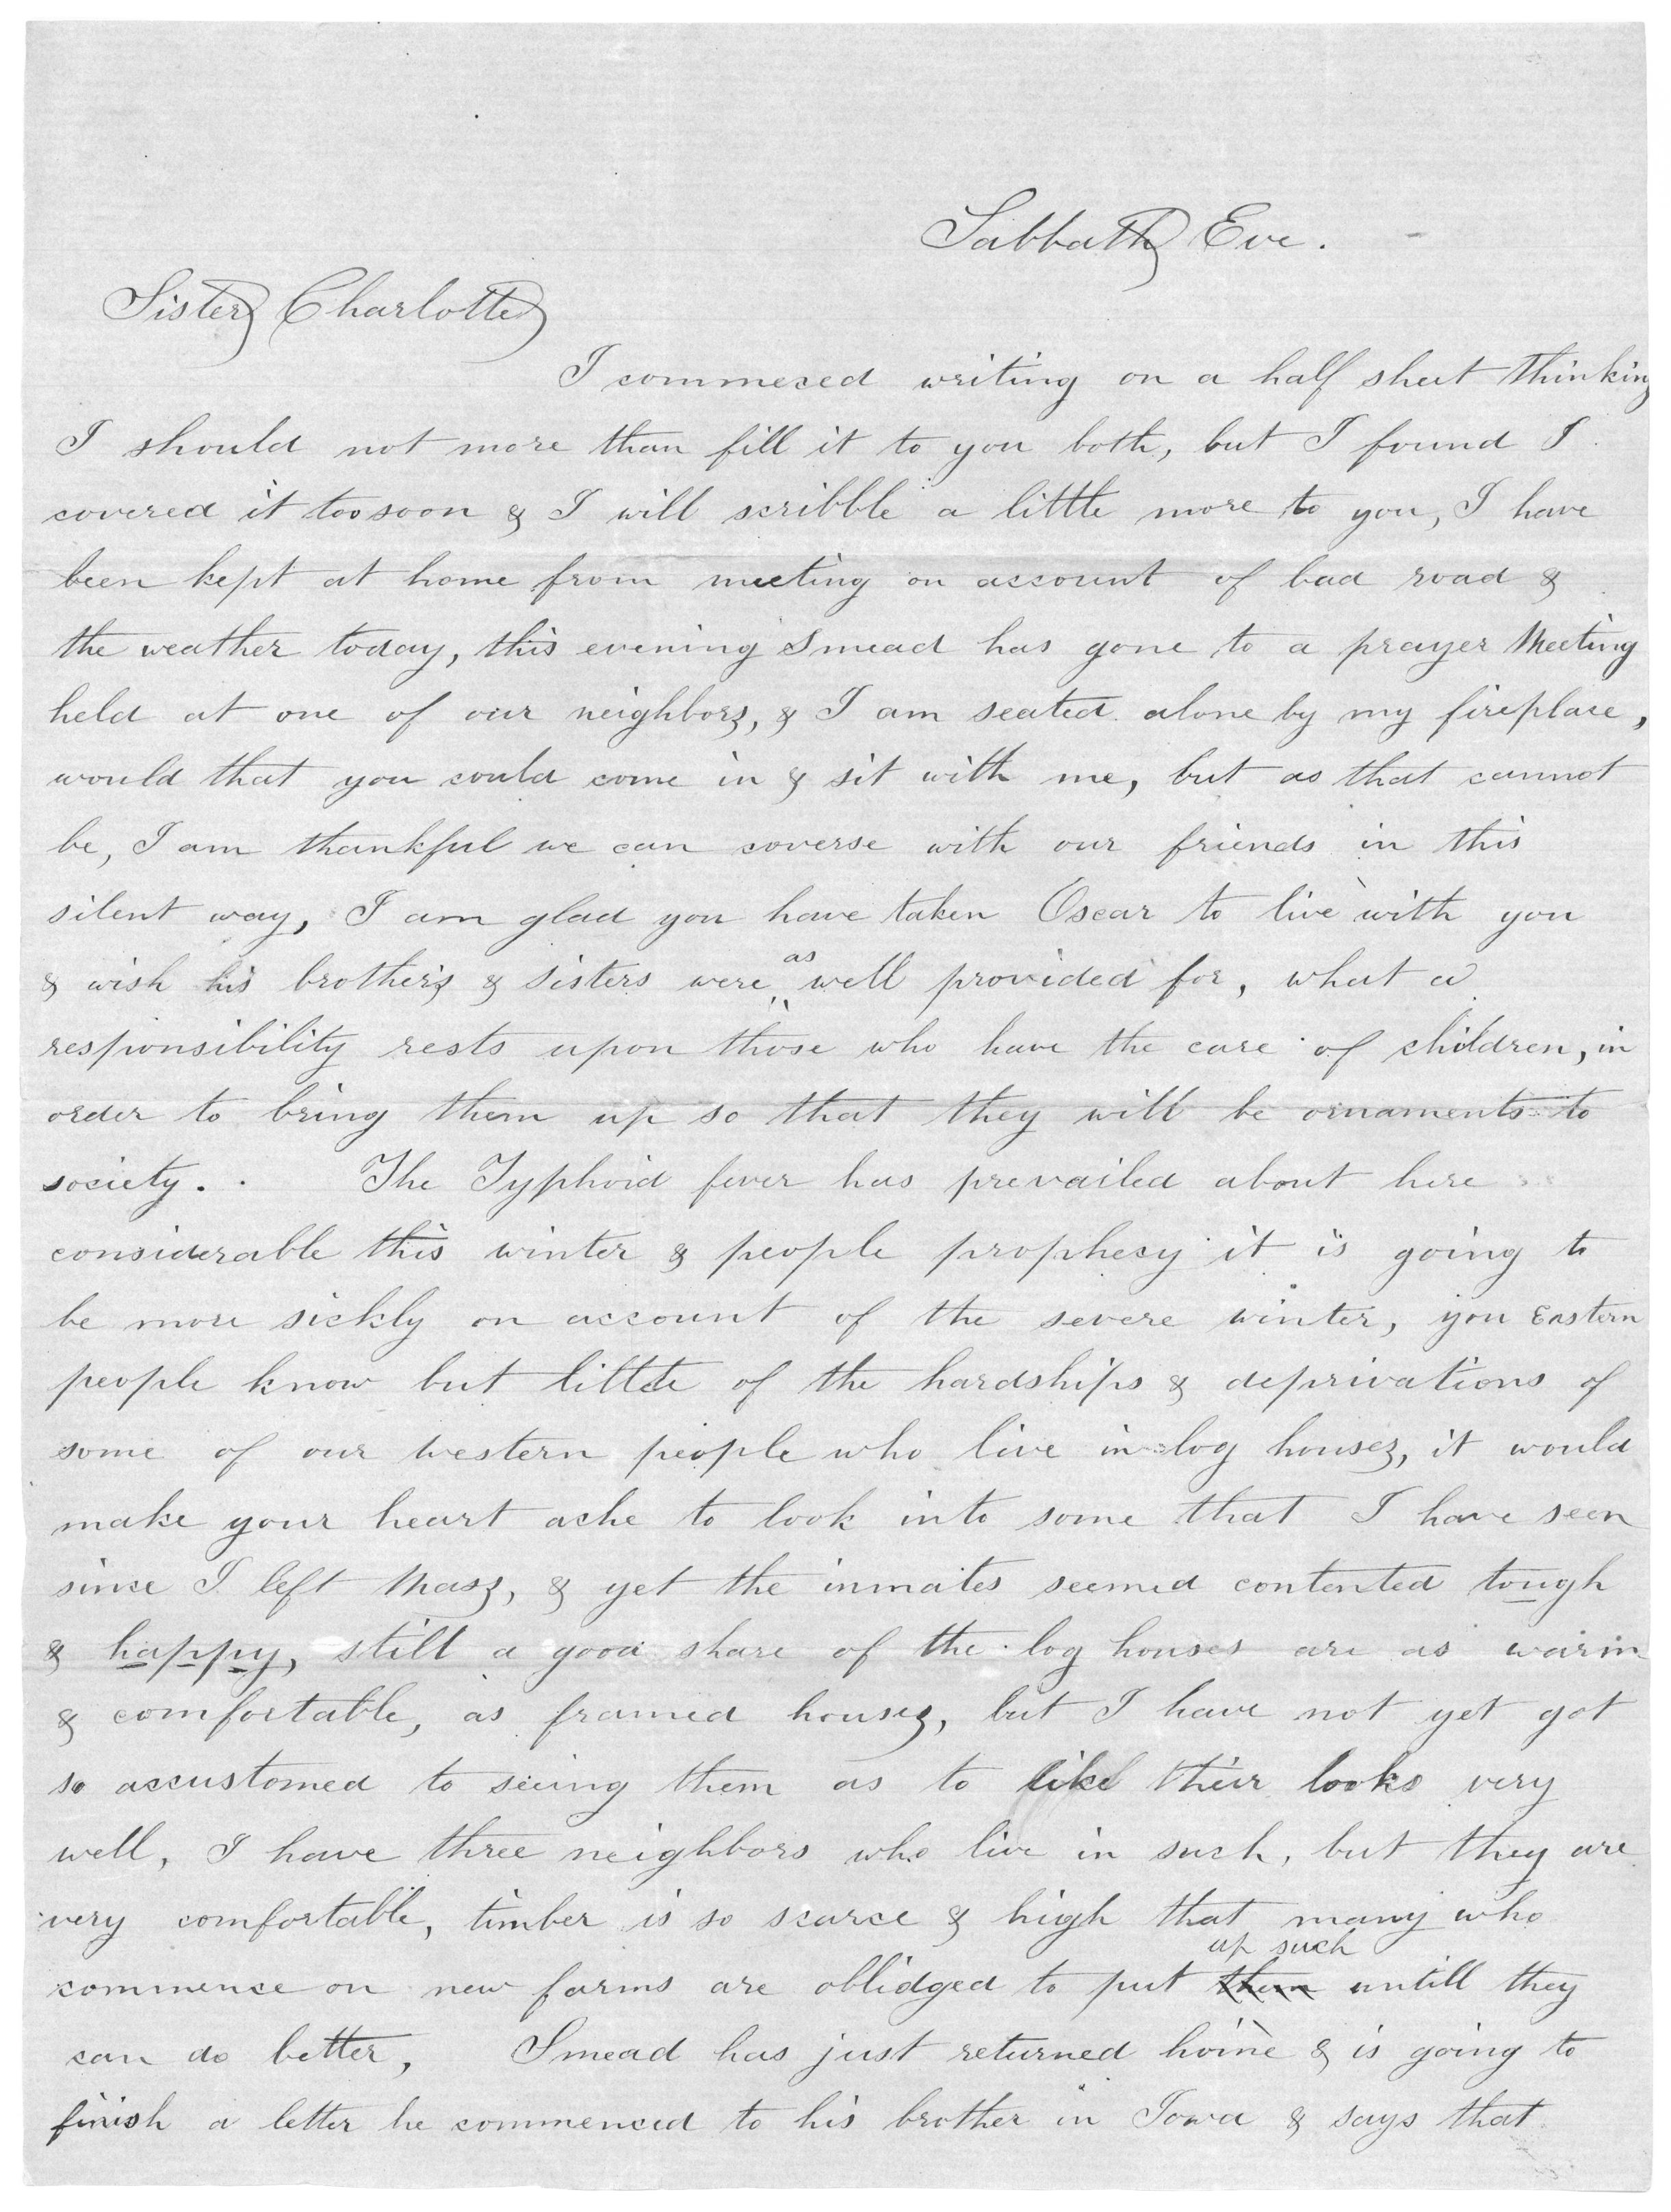 Sabbath Eve.
Sister Charlotte
I commeced writing on a half sheet thinking
I should not more than fill it to you both, but I found I
covered it too soon & I will scribble a little more to you, I have
been kept at home from meeting on account of bad road &
the weather today, this evening Smead has gone to a prayer Meeting
held at one of our neighbors, & I am seated alone by my fireplace,
would that you could come in & sit with me, but as that cannot
be, I am thankful we can coverse with our friends in this
silent way, I am glad you have taken Oscar to live with you
& wish his brothers & sisters were as well provided for, what a
responsibility rests upon those who have the care of children, in
order to bring them up so that they will be ornaments to
society. The Typhoid fever has prevailed about here
considerable this winter & people prophecy it is going to
be more sickly on account of the severe winter, you Eastern
people know but little of the hardships & deprivations of
some of our western people who live in log houses, it would
make your heart ache to look into some that I have seen
since I left Mass, & yet the inmates seemed contented tough
& happy, still a good share of the log houses are as warm
& comfortable, as framed houses, but I have not yet got
so accustomed to seeing them as to like their looks very
well, I have three neighbors who live in such, but they are
very comfortable, timber is so scarce & high that many who
commence on new farms are oblidged to put them up such untill they
can do better, Smead has just returned home & is going to
finish a letter he commenced to his brother in Iowa & says that